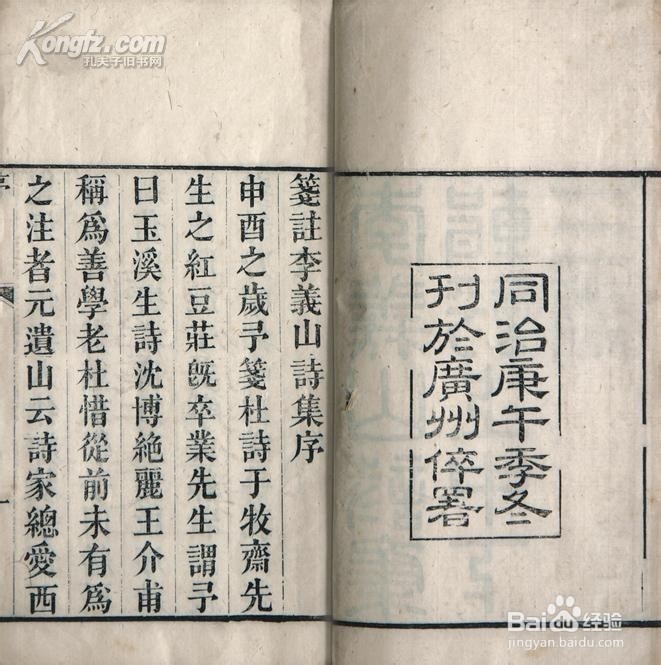 同治庚午季冬
刊於廣州倅署
箋註李義山詩集序
申酉之歲予箋杜詩于牧齋先
生之紅豆莊旣卒業先生謂予
曰玉溪生詩沈博絶麗王介甫
稱爲善學老杜惜從前未有爲
之注者元遺山云詩家總愛西
一
Kongfz.com
孔夫子旧书网
Baidu 经验
jingyan.baidu.com